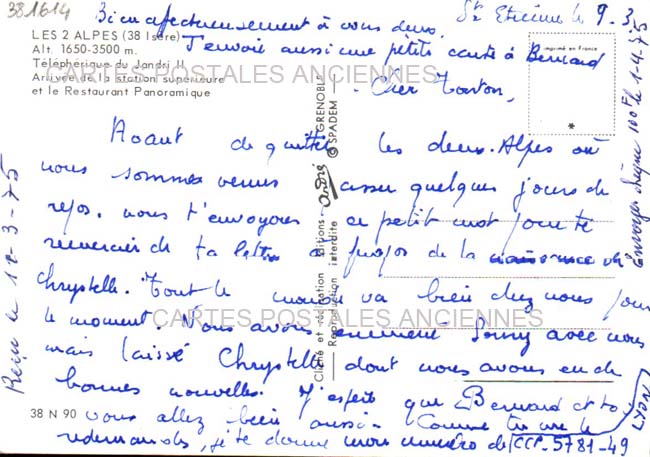 381614
Bien affectueusement à vous deux.
J'envoie aussi une petite carte à Bernard
St Etienne le 9.3.75
LES 2 ALPES (38 Isère)
Alt. 1650-3500 m.
Téléphérique du Jandri II
Arrivée de la Station supérieure
et le Restaurant Panoramique
CARTES POSTALES ANCIENNES
Imprimé en France
*
Cher Tonton,
Avant de quitter les deux Alpes où
nous sommes venus passer quelques jours de
repos. nous t'envoyons ce petit mot pour te
remercier de ta lettre à propos de la naissance de
Chrystelle. Tout le monde va bien chez nous pour
le moment. Nous avons emmené Jenny avec nous
mais laissé Chrystelle dont nous avons eu de
bonnes nouvelles. J'espère que Bernard et toi
vous allez bien aussi. Comme tu me le
redemandes, je te donne mon numéro de CCP. 5781-49
LYON
CARTES POSTALES ANCIENNES
38 N 90
Reçu le 12-3-75
Envoyé chèque 100F le 1-4-75
Cliché et réalisation éditions - André - GRENOBLE
Reproduction interdite © SPADEM